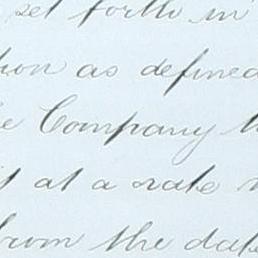 set forth in
as defined
Company
at a rate
from the date